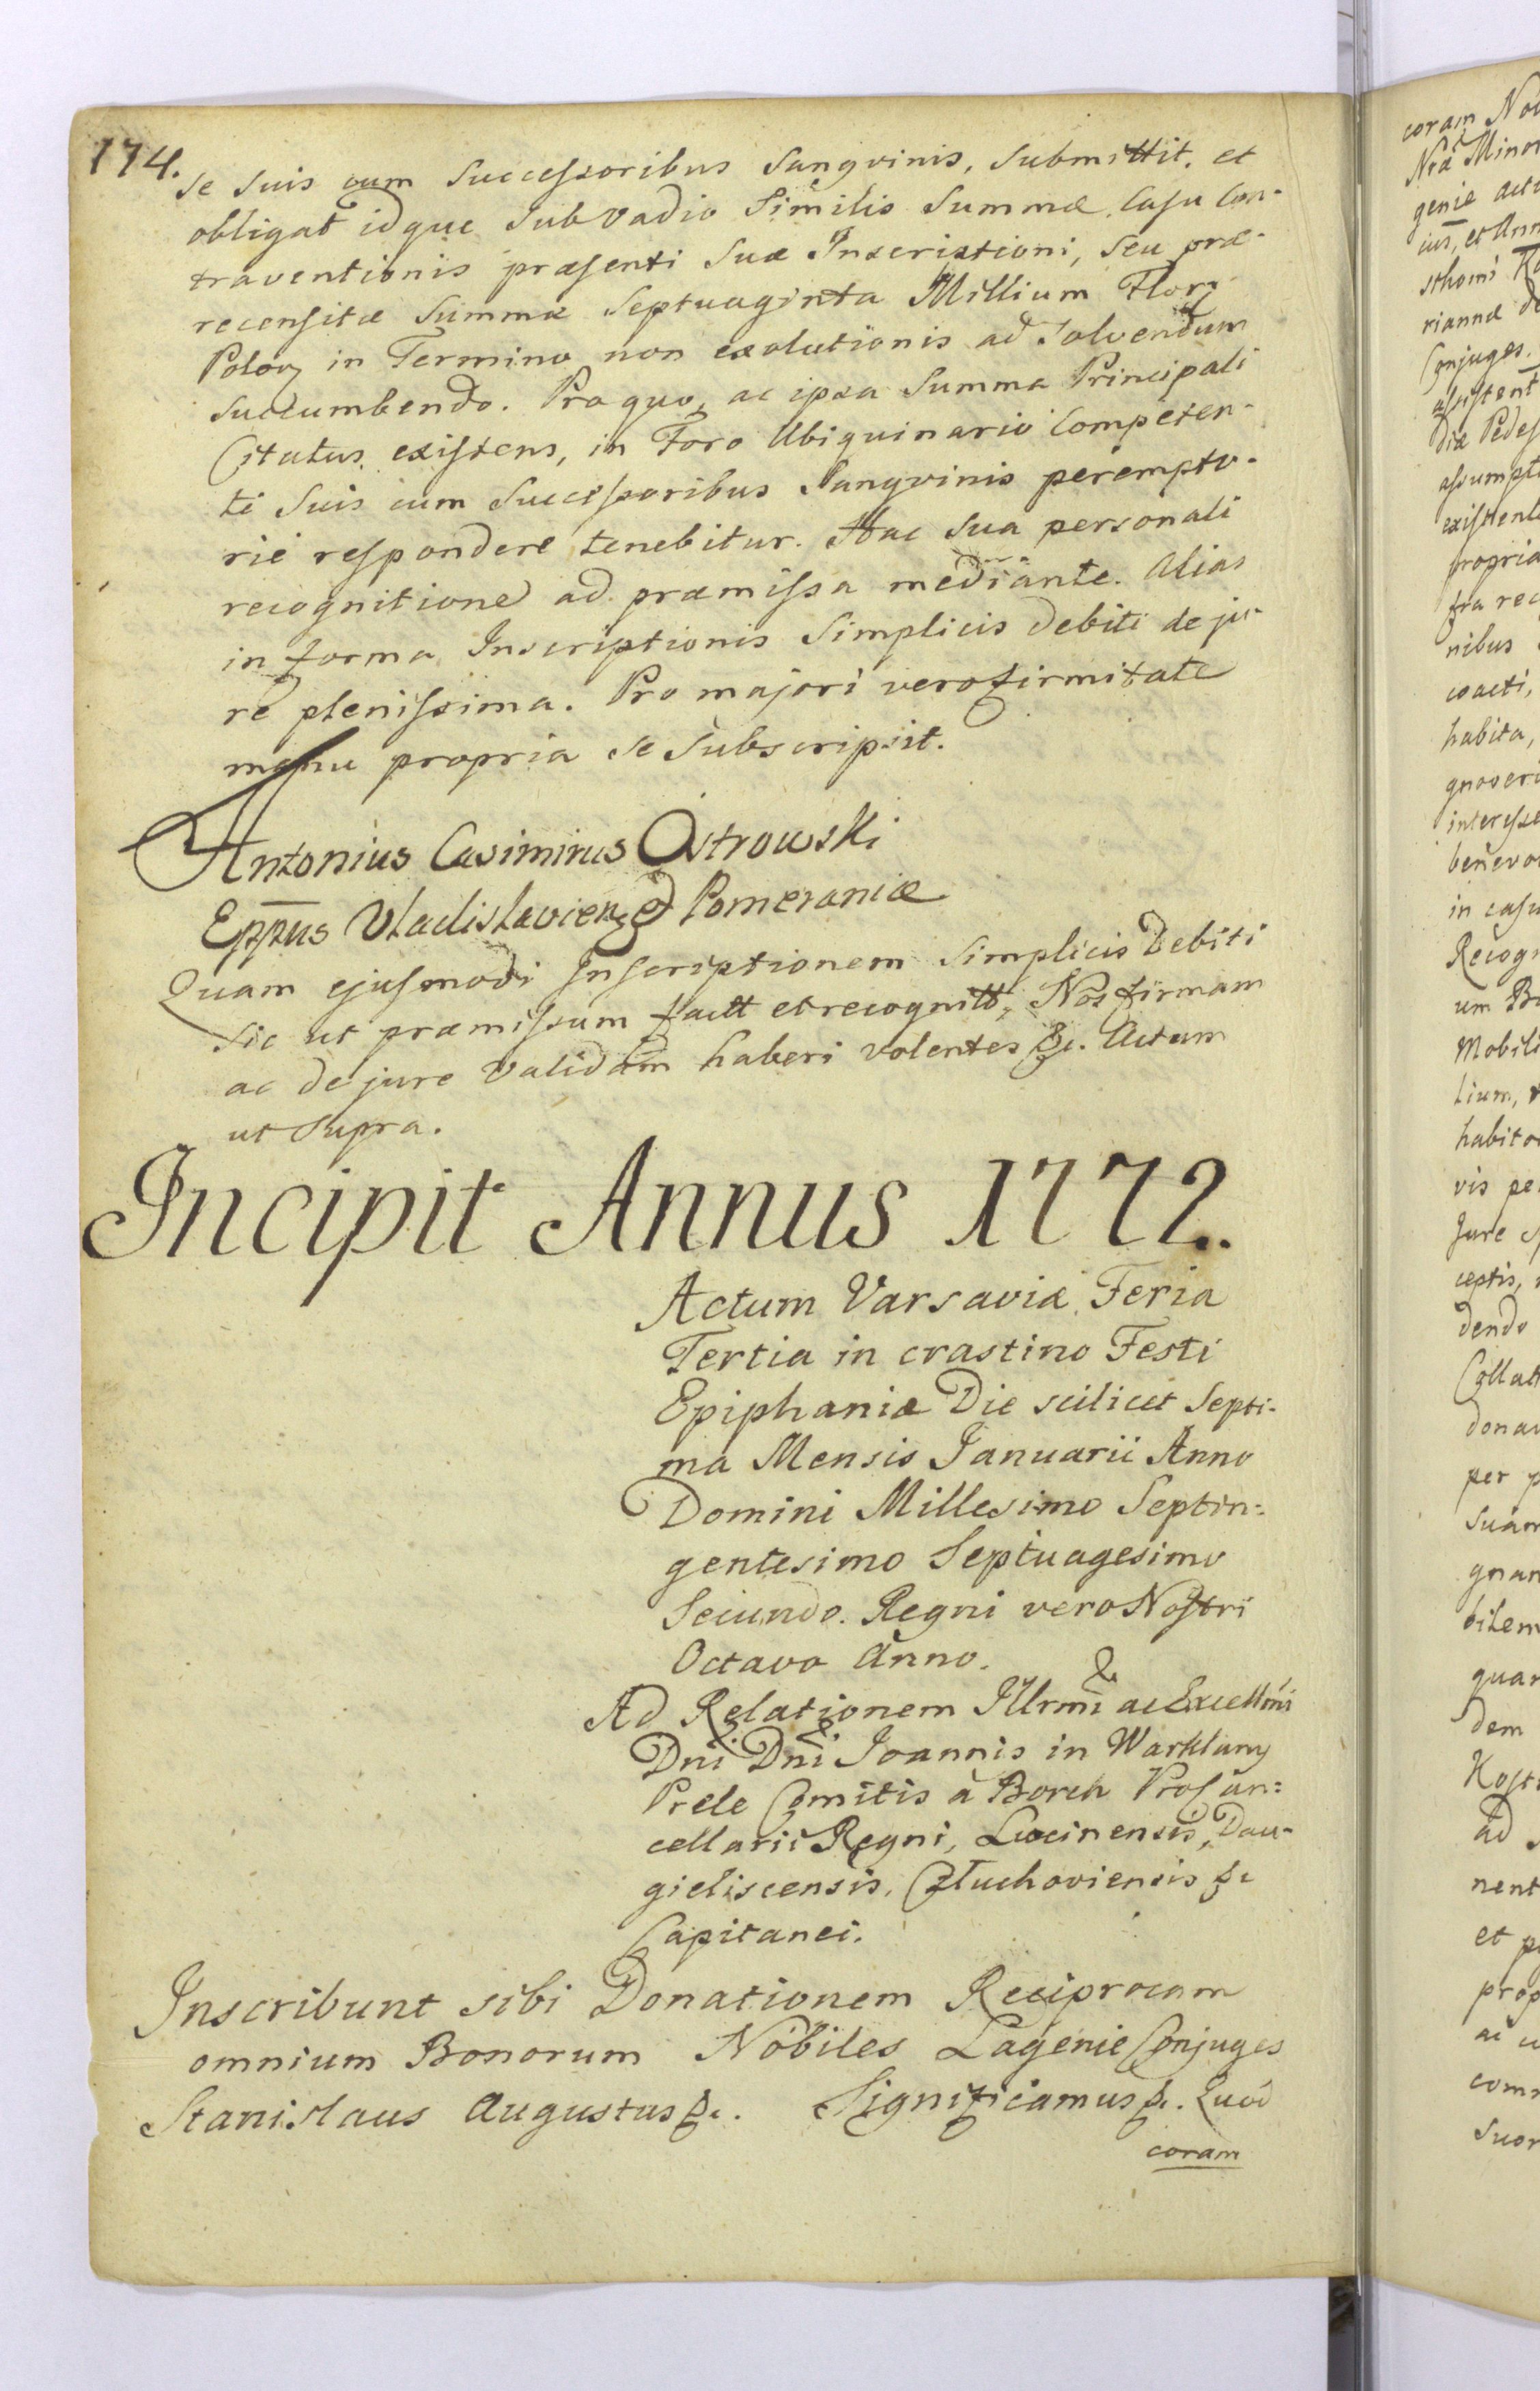 174.
se suis cum Successoribus Sangvinis, submittit, et
obligat idque sub Vadio Similis Summæ. Casu Con-
traventionis præsenti Suæ Inscriptioni, seu præ-
recensitæ Summæ Septuaginta Millium Flor
Polon in Termino non exolutionis ad Solvendum
succumbendo. Pro quo, ac ipsa Summa Principali
Citatus existens, in Foro Ubiquinario Competen-
ti Suis cum Successoribus Sangvinis perempto-
rie respondere tenebitur. Hac sua personali
recognitione ad præmissa mediante. Alias
in forma Inscriptionis Simplicis Debiti de ju-
re plenissima. Pro majori vero firmitate
manu propria se Subscripsit.
Antonius Casimirus Ostrowski
Eppus Vladislavien et Pomeraniæ
Quam ejusmodi Inscriptionem Simplicis Debiti
sic ut præmissum factt et recognitt, Nos firmam
ac de jure Validam haberi volentes &c. Actum
ut Supra.
Incipit Annus 1772.
Actum Varsaviæ Feria
Tertia in crastino Festi
Epiphaniæ Die scilicet Septi-
ma Mensis Januarii Anno
Domini Millesimo Septin-
gentesimo Septuagesimo
Secundo. Regni vero Nostri
Octavo Anno.
Ad Relationem Illrmi ac Excellmi
Dni Dni Joannis in Warklany
Prele Comitis à Borch ProCan-
cellarii Regni, Lucinensis, Dau-
gieliscensis, Człuchoviensis &c
Capitanei.
Inscribunt sibi Donationem Reciprocam
omnium Bonorum Nobiles Lagenie Conjuges
Stanislaus Augustus &c. Significamus &c. Quod
coram
coram
Minor
genie
riannæ
Conjuges,
propria
nibus
coacti,
habita,
interesse
in casu
um
lium,
vis
Jure
dendo
per
dem
ad
nent
et